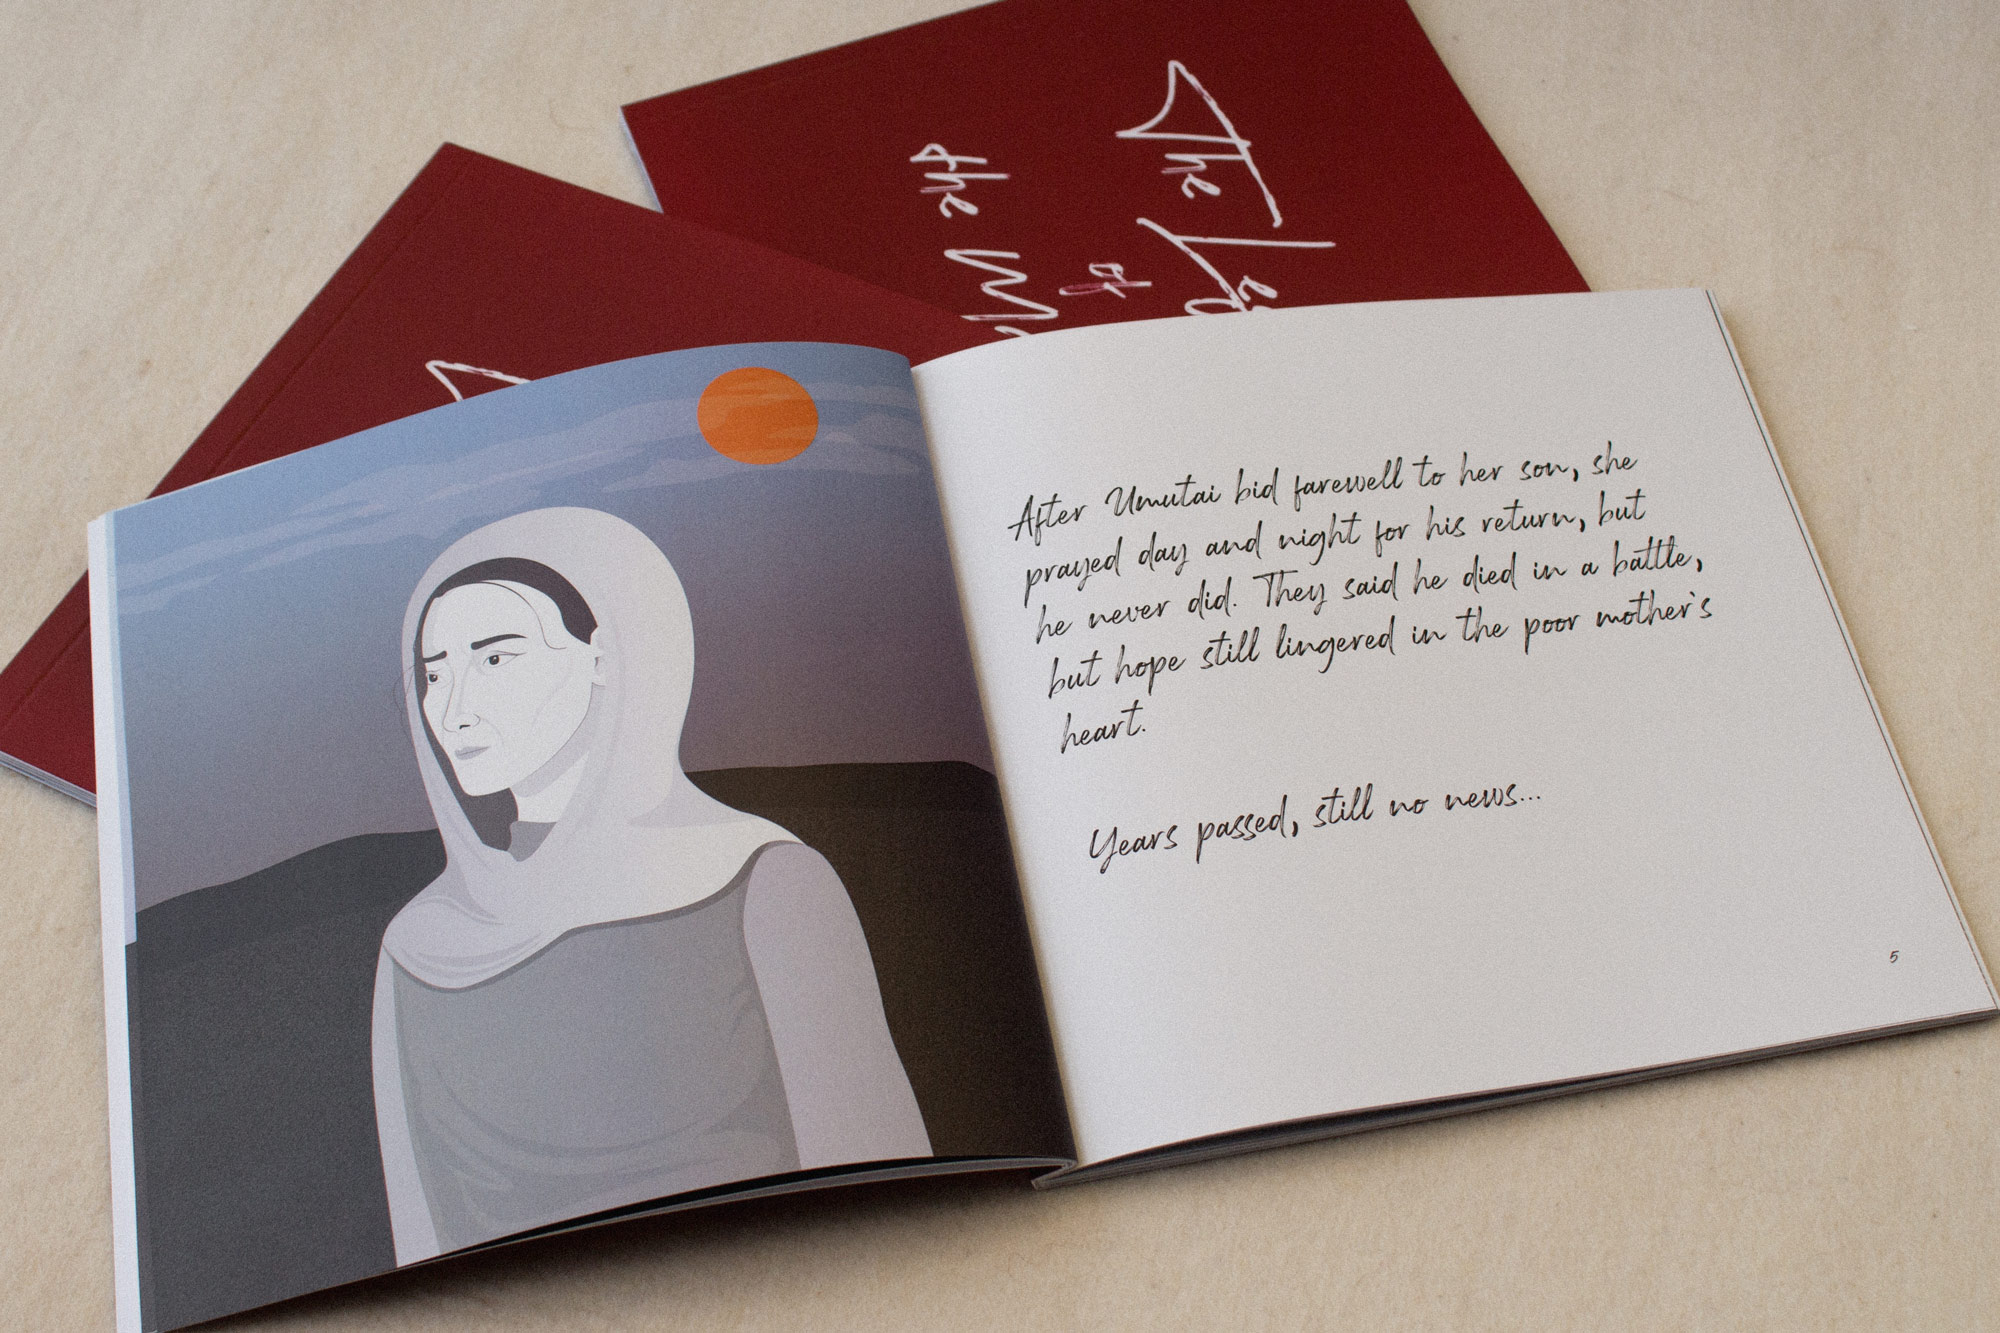 The
of
the
After Umutai bid farewell to her son, she
prayed day and night for his return, but
he never did. They said he died in a battle,
but hope still lingered in the poor mother's
heart.
Years passed, still no news...
5